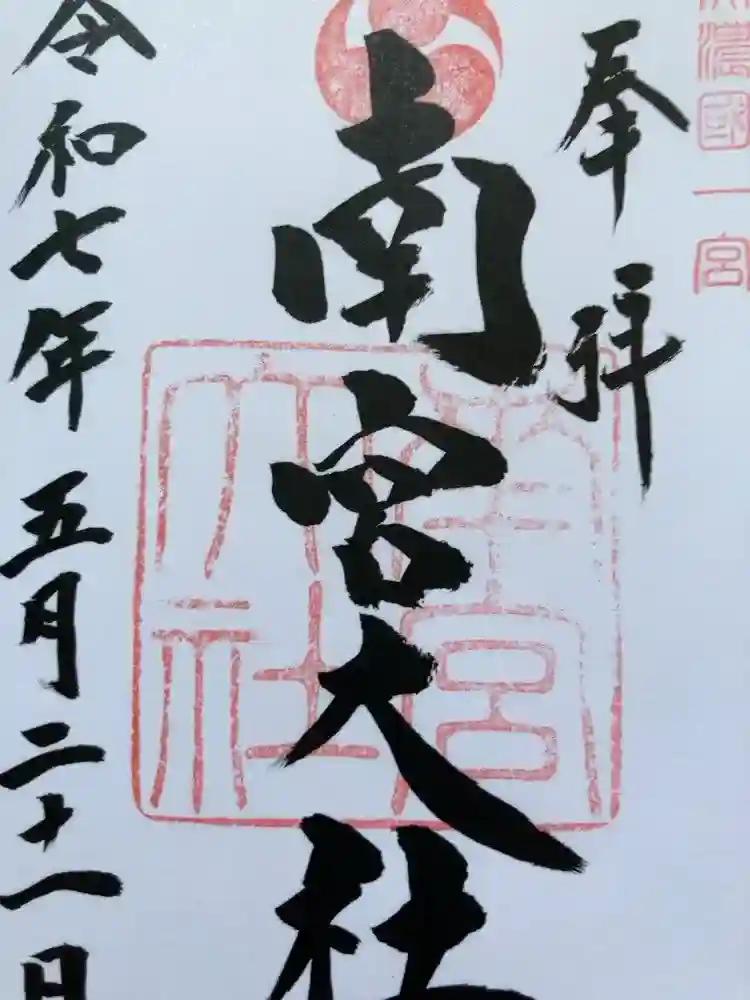 濃國一宮
奉拝
南宮大社
南宮大社
令和七年五月二十一日